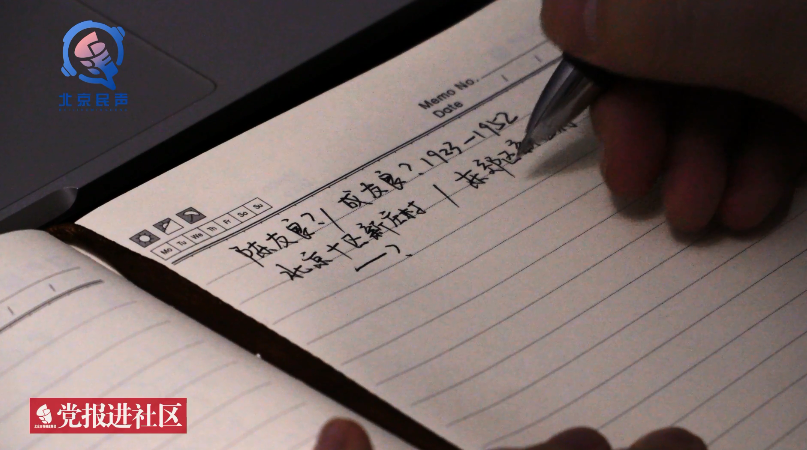 北京民声
Memo No.
Date
Mo Tu We Th Fr Sa Su
陈友良？/ 成友良？. 1923-1952
北京十区新庄村 / 东郊区新
—？
党报进社区